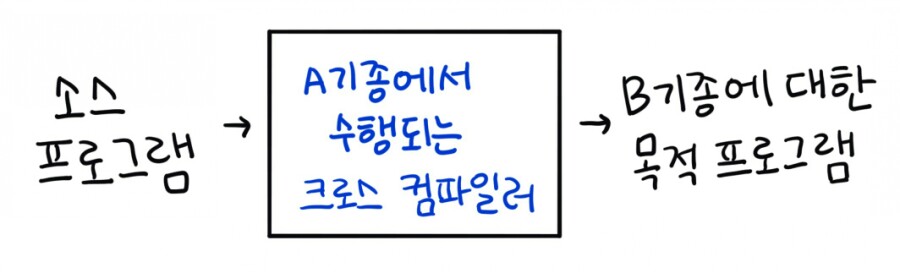 소스
프로그램
→
A기종에서
수행되는
크로스 컴파일러
→
B기종에 대한
목적 프로그램